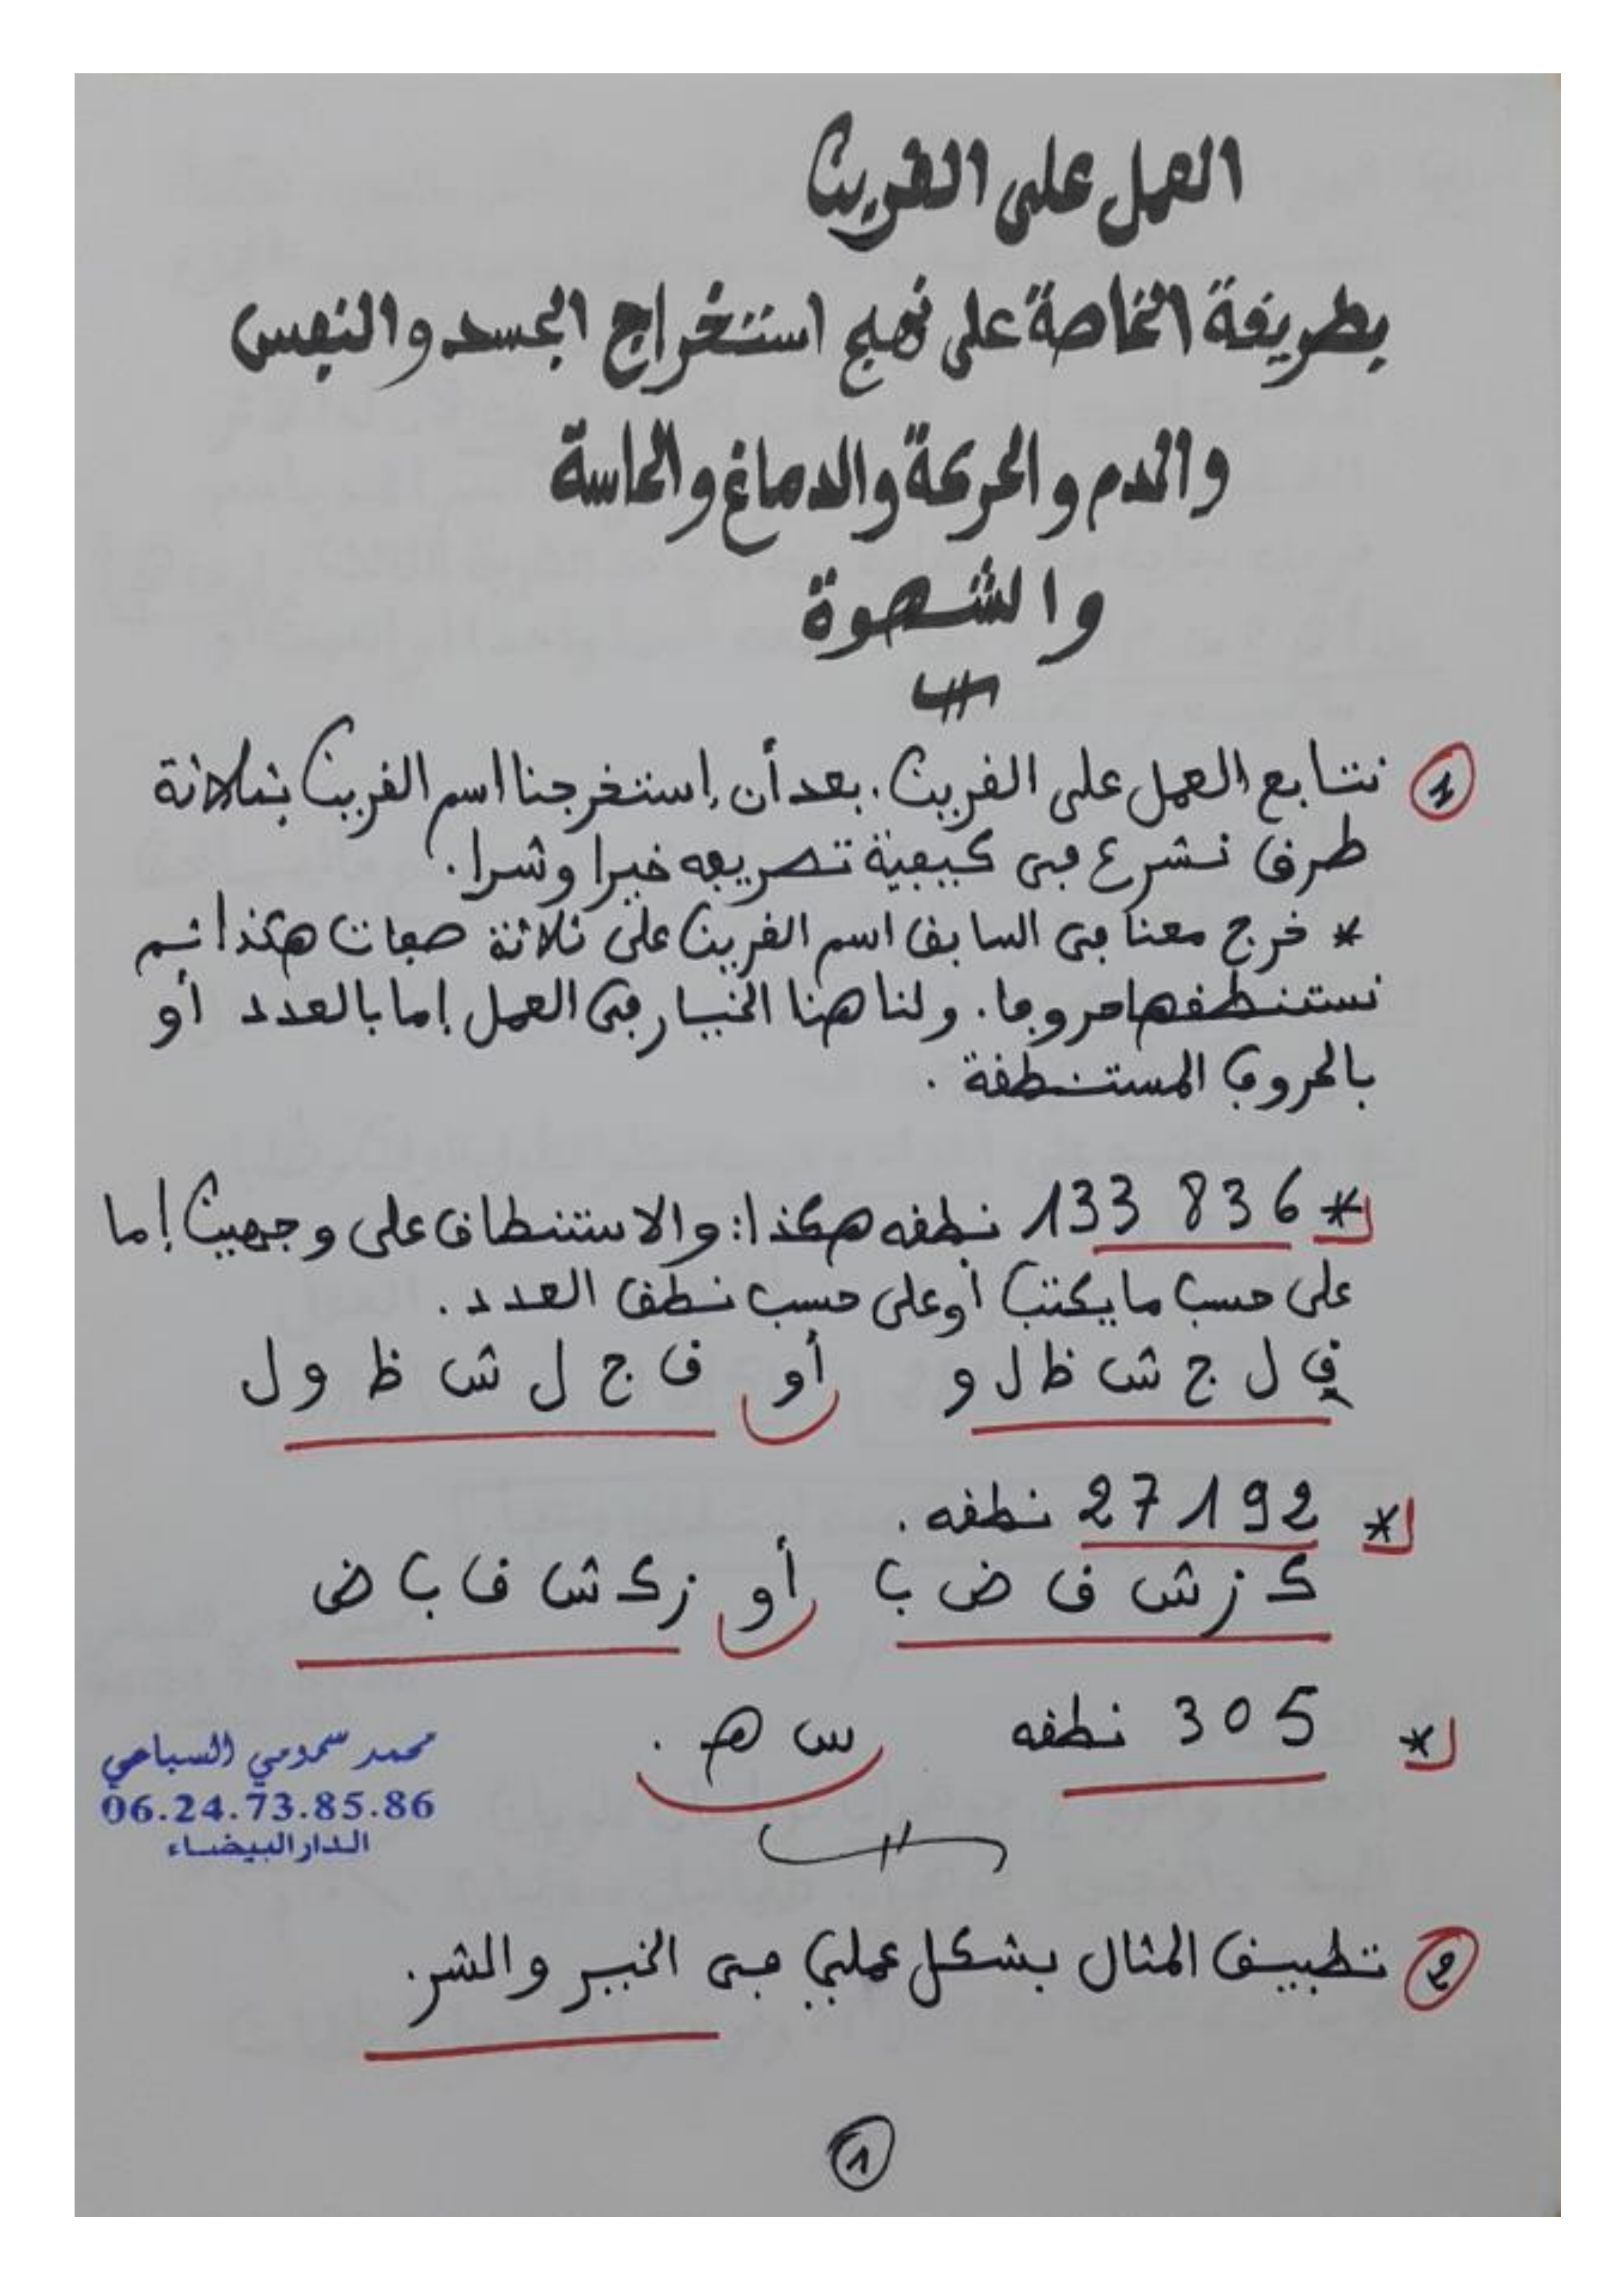 العمل على القرين
بطريقة الخاصة على نهج استنخراج الجسد والنفس
والدم والحركة والدماغ والحاسة
والشهوة
1 نتابع العمل على القرين. بعد أن إستخرجنا اسم القرين بثلاثة
طرق نشرع في كيفية تصريفه خيرا وشرا.
* خرج معنا في السابق اسم القرين على ثلاثة صفات هكذا ثم
نستنطقها حروفا. ولنا هنا الخيار في العمل إما بالعدد أو
بالحروف المستنطقة.
* 133 836 نطقه هكذا: والاستنطاق على وجهين إما
على حسب ما يكتب أو على حسب نطق العدد.
ق ل ج ش ظ ل و أو ق ج ل ش ظ و ل
* 27192 نطقه.
ك ز ش ق ض ب أو ز ك ش ق ب ض
* 305 نطقه س هـ.
محمد سمومي السباعي
06.24.73.85.86
الدار البيضاء
2 تطبيق المثال بشكل عملي في الخير والشر.
1